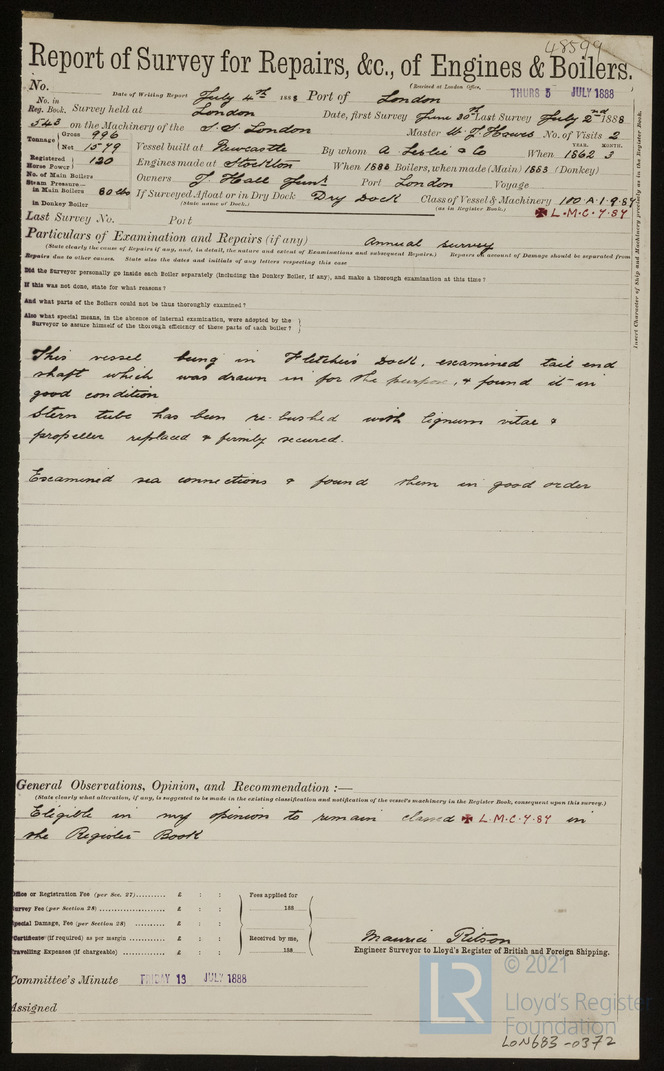 48599
Report of Survey for Repairs, &c., of Engines & Boilers.
No. Date of Writing Report July 4th 1888 Port of London (Received at London Office, THURS 5 JULY 1888
No. in Reg. Book. Survey held at London Date, first Survey June 30th Last Survey July 2nd 1888
543 on the Machinery of the S.S. London Master No. of Visits 2
Tonnage Gross 996 Net 1579 Vessel built at Newcastle By whom A Leslie & Co When YEAR. 1862 MONTH. 3
Registered Horse Power 120 Engines made at Stockton When 1882 Boilers, when made (Main) 1883 (Donkey)
No. of Main Boilers Owners J Hall Junr Port London Voyage
Steam Pressure— in Main Boilers 80 lbs If Surveyed Afloat or in Dry Dock Dry Dock Class of Vessel & Machinery 100 A 1 9.87
in Donkey Boiler (State name of Dock.) (as in Register Book.) ✠ L.M.C. 7.87
Last Survey No. Port
Particulars of Examination and Repairs (if any) Annual survey
(State clearly the cause of Repairs if any, and, in detail, the nature and extent of Examinations and subsequent Repairs.) Repairs on account of Damage should be separated from
Repairs due to other causes. State also the dates and initials of any letters respecting this case
Did the Surveyor personally go inside each Boiler separately (including the Donkey Boiler, if any), and make a thorough examination at this time?
If this was not done, state for what reasons?
And what parts of the Boilers could not be thus thoroughly examined?
Also what special means, in the absence of internal examination, were adopted by the
Surveyor to assure himself of the thorough efficiency of those parts of each boiler?
This vessel being in Fletcher's Dock, examined tail end
shaft which was drawn in for the purpose, & found it in
good condition
Stern tube has been re-bushed with lignum vitae &
propeller replaced & firmly secured.
Examined sea connections & found them in good order
Insert Character of Ship and Machinery precisely as in the Register Book.
General Observations, Opinion, and Recommendation :—
(State clearly what alteration, if any, is suggested to be made in the existing classification and notification of the vessel's machinery in the Register Book, consequent upon this survey.)
Eligible in my opinion to remain classed ✠ L.M.C. 7.87 in
the Register Book
Office or Registration Fee (per Sec. 27).......... £ : : Fees applied for
Survey Fee (per Section 28) .................... £ : : 188
Special Damage, Fee (per Section 28) .......... £ : :
Certificate (if required) as per margin .......... £ : : Received by me,
Travelling Expenses (if chargeable) .......... £ : : 188
Maurice Ritson
Engineer Surveyor to Lloyd's Register of British and Foreign Shipping.
Committee's Minute FRIDAY 13 JULY 1888
Assigned
LR
© 2021
Lloyd's Register
Foundation
LON683-0372